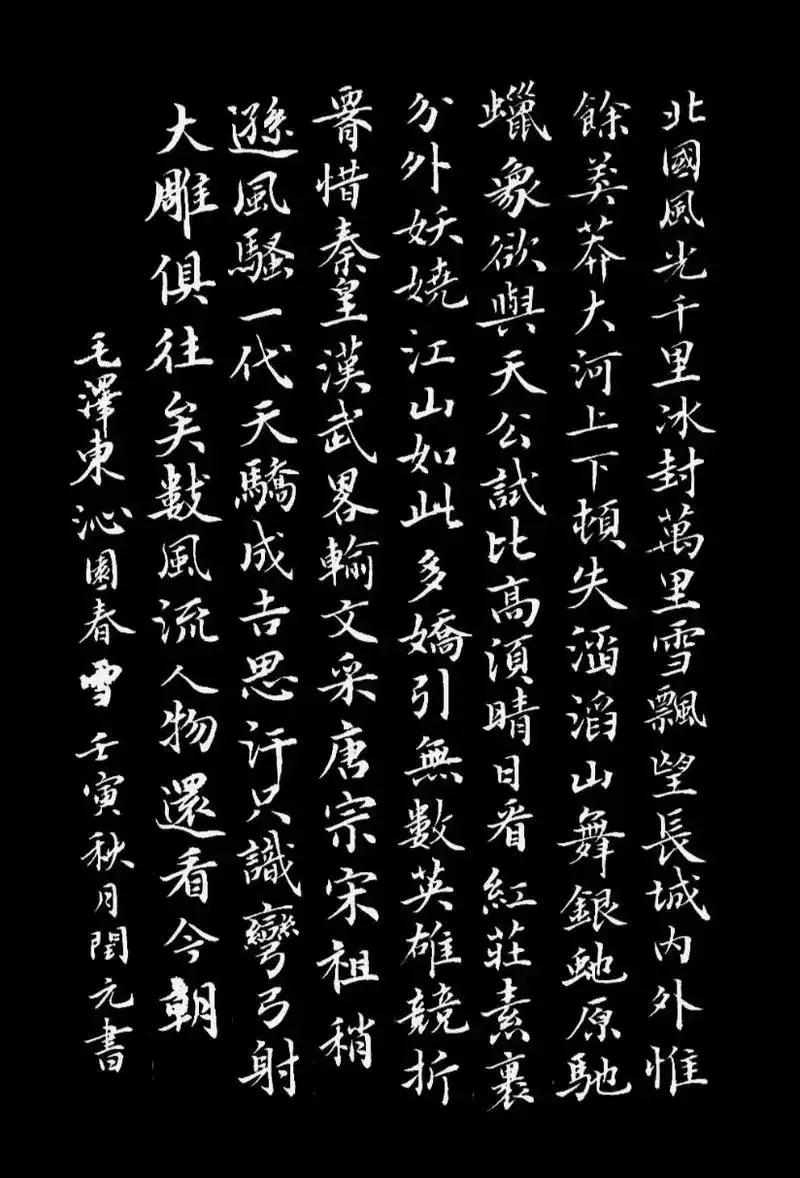 北國風光千里冰封萬里雪飄望長城內外惟
餘莽莽大河上下頓失滔滔山舞銀虵原馳
蠟象欲與天公試比高須晴日看紅莊素裹
分外妖嬈江山如此多嬌引無數英雄競折
腰惜秦皇漢武畧輸文采唐宗宋祖稍
遜風騷一代天驕成吉思汗只識彎弓射
大雕俱往矣數風流人物還看今朝
毛澤東沁園春雪壬寅秋月閏元書